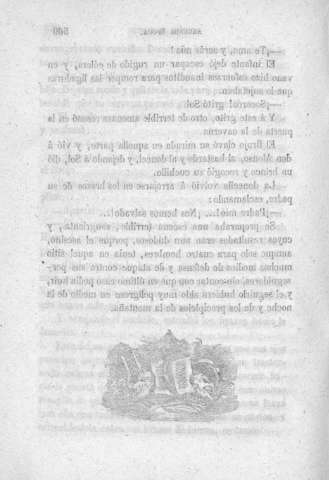 560 SEGUNDA EPOCA.
—¡Te amo, y serás mia!
El infante dejó escapar un rugido de cólera, y en
vano hizo esfuerzos inauditos para romper las ligaduras
que lo sujetaban.
—¡Socorro! gritó Sol.
Y á este grito, otro de terrible amenaza resonó en la
puerta de la caverna.
El Brujo clavó su mirada en aquella parte, y vió á
don Alonso, al bastardo y al doncel, y dejando á Sol, dió
un brinco y recogió su cuchillo.
La doncella volvió á arrojarse en los brazos de su
padre, esclamando:
—¡Padre mio!... ¡Nos hemos salvado!...
Se preparaba una escena terrible, sangrienta, y
cuyos resultados eran aun dudosos, porque el asesino,
aunque solo para cuatro hombres, tenia en aquel sitio
muchos medios de defensa y de ataque contra sus per-
seguidores, contaba con que en último caso podia huir,
y el seguirlo hubiera sido muy peligroso en medio de la
noche y de los precipicios de la montaña.